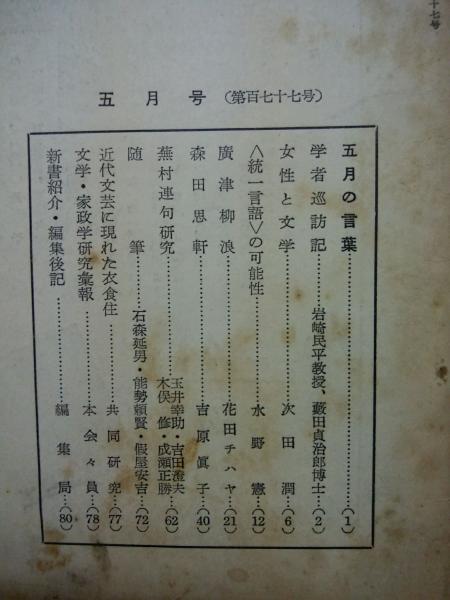 十七号
五月号（第百七十七号）
五月の言葉……（1）
学者巡訪記……岩崎民平教授、藪田貞治郎博士…（2）
女性と文学……次田潤…（6）
〈統一言語〉の可能性……水野憲…（12）
廣津柳浪……花田チハヤ…（21）
森田思軒……吉原眞子…（40）
蕪村連句研究……玉井幸助・吉田澄夫 木俣修・成瀬正勝…（62）
随筆……石森延男・能勢頼賢・假屋安吉…（72）
近代文芸に現れた衣食住……共同研究…（77）
文学・家政学研究彙報……本会々員…（78）
新書紹介・編集後記……編集局…（80）